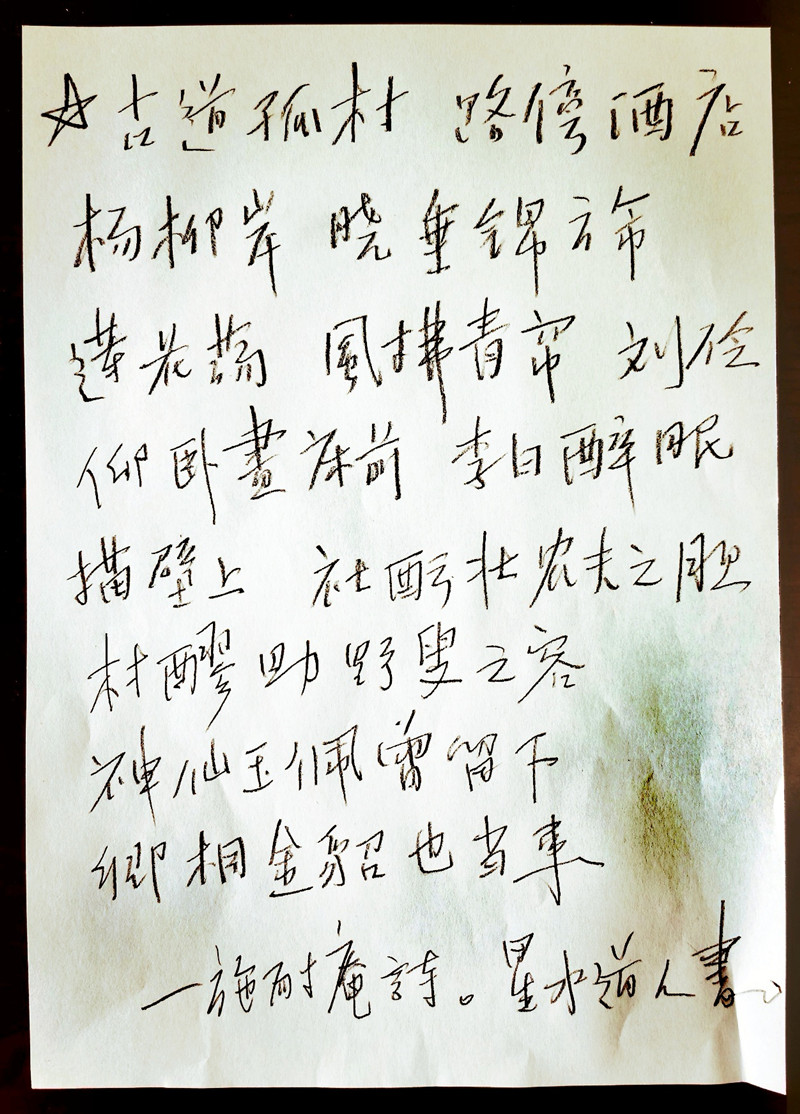 ☆古道孤村 路傍酒店
杨柳岸 晓垂錦旆
蓮花蕩 風拂青帘 刘伶
仰卧畫床前 李白醉眠
描壁上 社醖壮农夫之胆
村醪助野叟之容
神仙玉佩曾留下
卿相金貂也当来
一施耐庵詩。星水道人書。